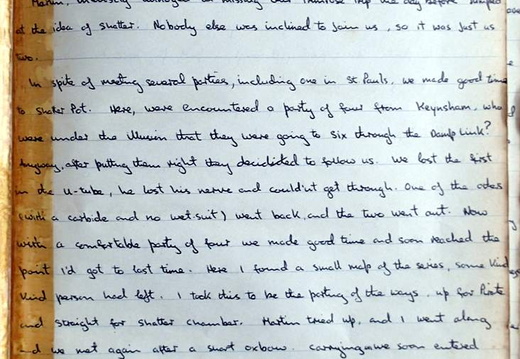 Martin, missing our trip the day before
at the idea of shatter. Nobody else was inclined to join us, so it was just us
two.
In spite of meeting several parties, including one in St Pauls, we made good time
to shatter Pot. Here, were encountered a party of four from Keynsham, who
were under the illusion that they were going to six through the Damp Link?
Anyway, after putting them right they decidided to follow us. We lost the first
in the U-tube, he lost his nerve and couldn't get through. One of the others
(with a carbide and no wet-suit) went back, and the two went out. Now
with a comfortable party of four we made good time and soon reached the
point I'd got to last time. Here I found a small map of the series, some kind
kind person had left. I took this to be the parting of the ways, up for Pirate
and straight for shatter chamber. Martin tried up, and I went along
and we met again after a short oxbow. carrying on we soon entered